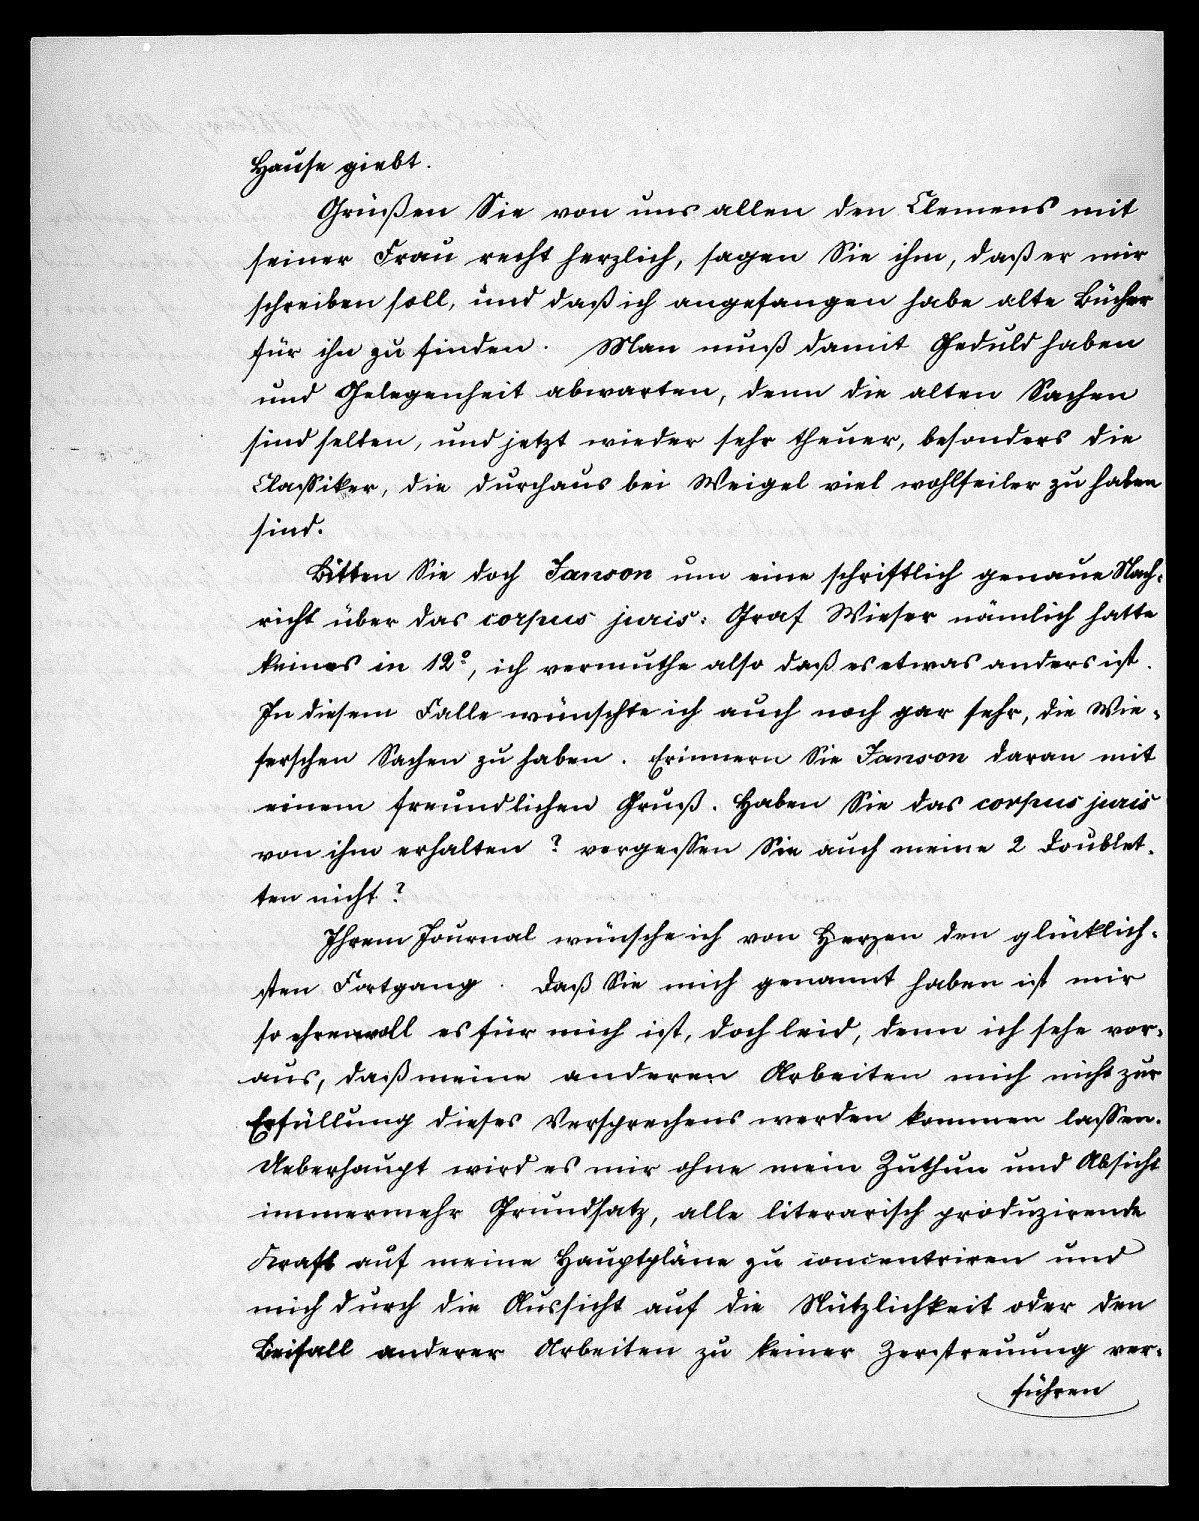 Hause giebt.
Grüßen Sie von uns allen den Clemens mit
seiner Frau recht herzlich, sagen Sie ihm, daß er mir
schreiben soll, und daß ich angefangen habe alte Bücher
für ihn zu finden. Man muß damit Geduld haben
und Gelegenheit abwarten, denn die alten Sachen
sind selten, und jetzt wieder sehr theuer, besonders die
Classiker, die durchaus bei Weigel viel wohlfeiler zu haben
sind.
Bitten Sie doch Janson um eine schriftlich genaue Nach-
richt über das corpus juris: Graf Wieser nämlich hatte
keines in 12º, ich vermuthe also daß es etwas anders ist.
In diesem Falle wünschte ich auch noch gar sehr, die Wie-
serschen Sachen zu haben. Erinnern Sie Janson daran mit
einem freundlichen Gruß. Haben Sie das corpus juris
von ihm erhalten? vergessen Sie auch meine 2 Doublet-
ten nicht?
Ihrem Journal wünsche ich von Herzen den glücklich-
sten Fortgang. Daß Sie mich genannt haben ist mir
so ehrenvoll es für mich ist, doch leid, denn ich sehe vor-
aus, daß meine anderen Arbeiten mich nicht zur
Erfüllung dieses Versprechens werden kommen lassen.
Ueberhaupt wird es mir ohne mein Zuthun und Absicht
immermehr Grundsatz, alle literarisch produzirende
Kraft auf meine Hauptpläne zu concentriren und
mich durch die Aussicht auf die Nützlichkeit oder den
Beifall anderer Arbeiten zu keiner Zerstreuung ver-
führen